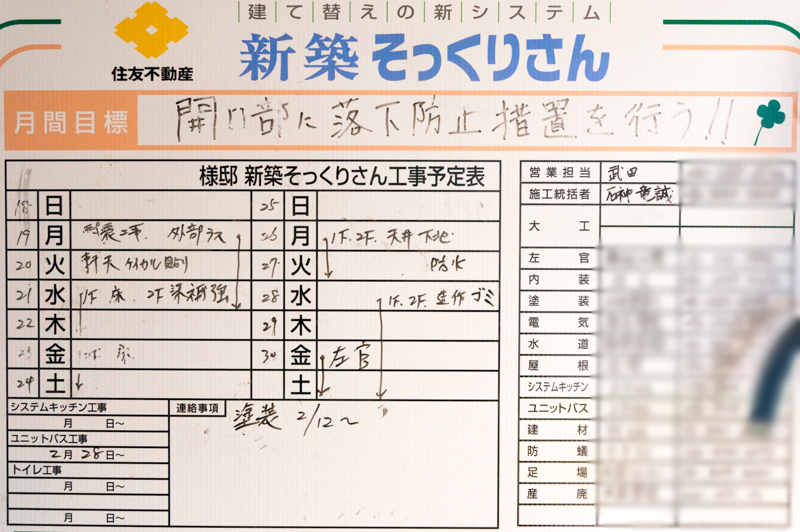 建て替えの新システム
住友不動産
新築そっくりさん
月間目標
開口部に落下防止措置を行う!!
様邸 新築そっくりさん工事予定表
18 日
19 月 外部ラス
20 火 軒天ケイカル貼り
21 水 1F 床 2F 梁補強
22 木
23 金
24 土
25 日
26 月 1F.2F. 天井下地
27 火 防水
28 水 1F.2F. 造作 ゴミ
29 木
30 金 左官
土
システムキッチン工事
月 日~
ユニットバス工事
2月28日~
トイレ工事
月 日~
月 日~
連絡事項
塗装 2/12~
営業担当 武田
施工統括者 石神 竜誠
大工
左官
内装
塗装
電気
水道
屋根
システムキッチン
ユニットバス
建材
防蟻
足場
産廃